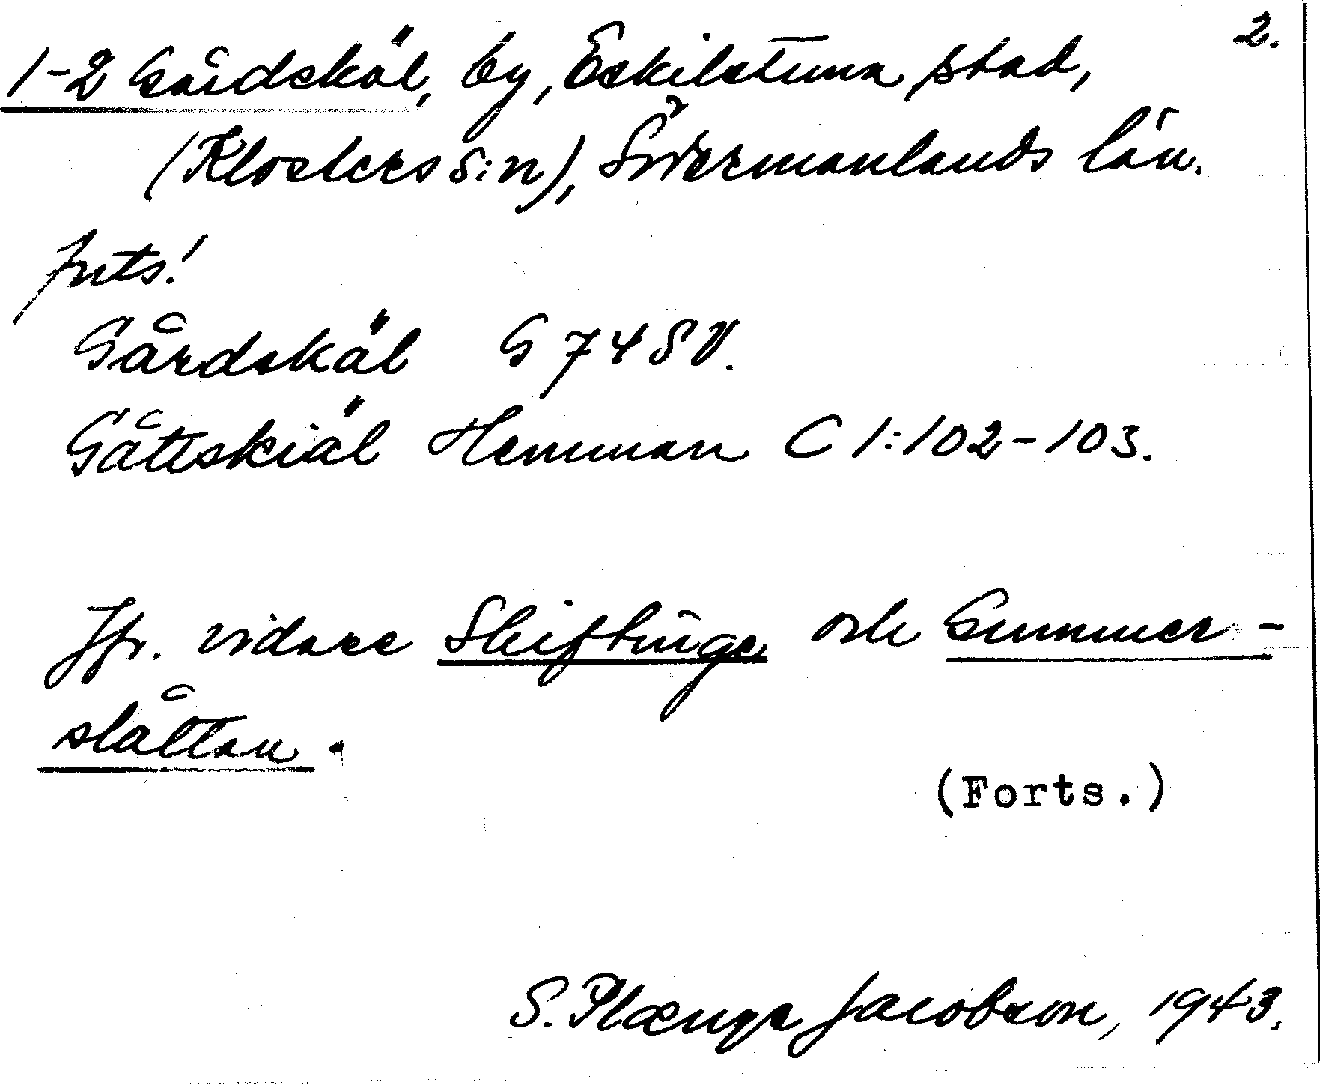 2.
1-2 Gårdskäl, by, Eskilstuna stad,
(Klosters s:n), Södermanlands län.
forts!
Gårdskäl G 7 4 SV.
Gåttskiäl Hemman C 1:102-103.
Jfr. vidare och Gummer-
slåttan.
(Forts.)
S. Plænge Jacobson, 1943.